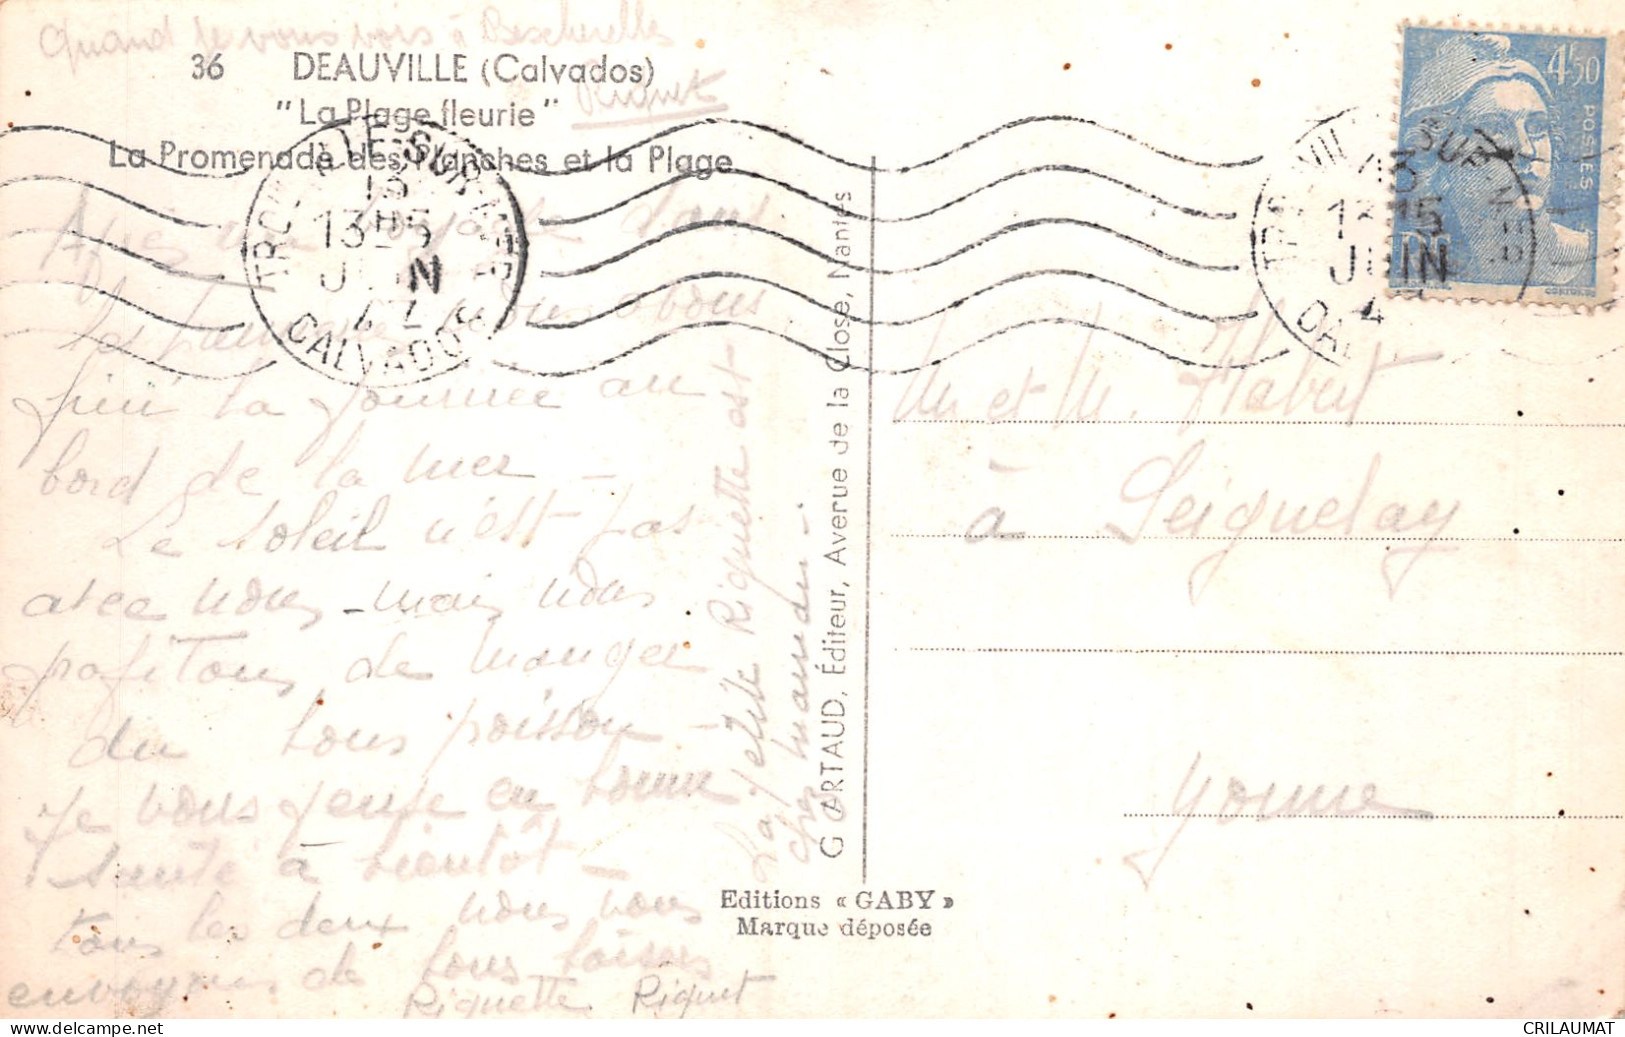 Quand je vous vois à Bescherelles
Riquet
36 DEAUVILLE (Calvados)
"La Plage fleurie"
La Promenade des Planches et la Plage
TROUVILLE-SUR-MER
13
13H15
JUIN
47
CALVADOS
4F50
POSTES
RF
Après un voyage dans
nous avons
fini la journée au
bord de la mer –
Le soleil n'est pas
avec nous – mais nous
profitons de manger
du bon poisson –
Je vous pense en bonne
santé à bientôt –
tous les deux nous vous
envoyons de bons baisers
Riquette Riquet
La petite Riquette est
chez maman –
G. ARTAUD, Éditeur, Avenue de la Close, Nantes
Editions « GABY »
Marque déposée
M et M. Habert
à Seignelay
Yonne
CRILAUMAT